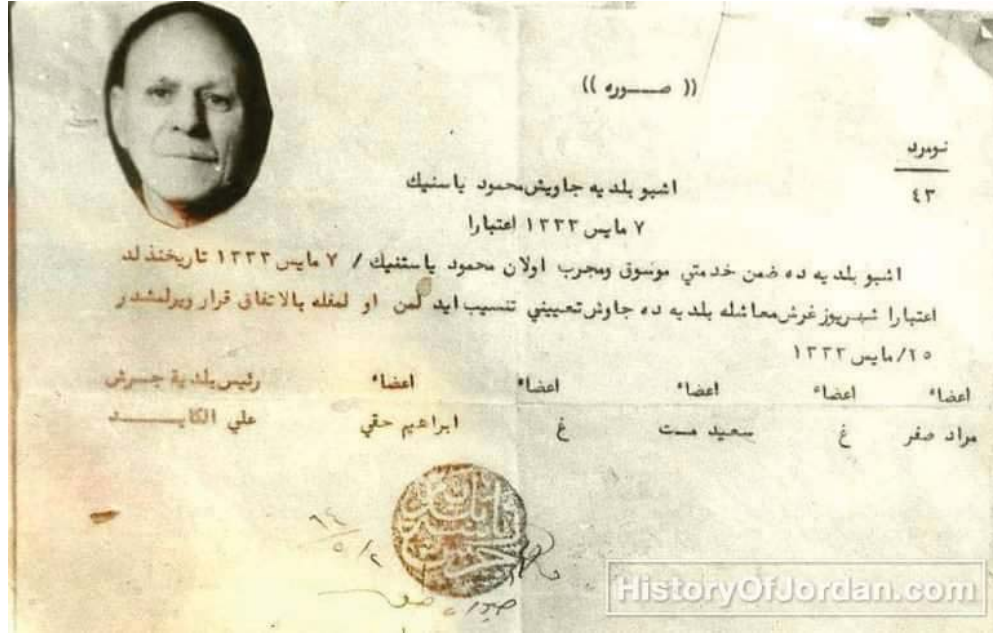 (( صـــوره ))
نومرد
٤٣
اشبو بلديه جاويش محمود ياستيك
٧ مايس ١٣٣٣ اعتبارا
اشبو بلديه ده ضمن خدمتي موسوق ومجرب اولان محمود ياستفيك / ٧ مايس ١٣٣٣ تاريخنذ لد
اعتبارا شهريوز غرش معاشله بلديه ده جاوش تعييني تنسيب ايد لمن او لمغله بالاتفاق قرار ويرلمشدر
٢٥/مايس ١٣٣٣
اعضاء اعضاء اعضاء اعضاء اعضاء رئيس بلدية جرش
مراد صفر غ سعيد مست غ ابراهيم حقي علي الكايـــد
HistoryOfJordan.com